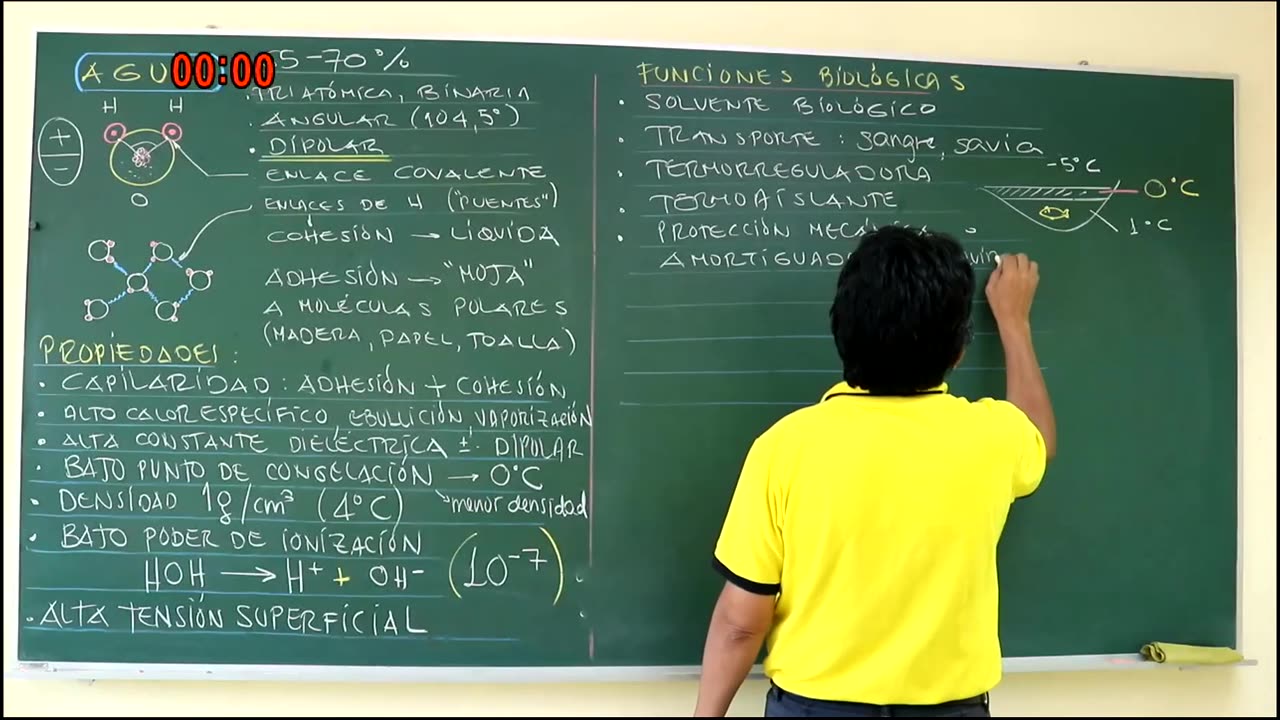 00:00
AGU
65-70%
H H
+
-
O
• TRIATÓMICA, BINARIA
• ANGULAR (104,5°)
• DIPOLAR
ENLACE COVALENTE
ENLACES DE H ("PUENTES")
COHESIÓN → LÍQUIDA
ADHESIÓN → "MOJA"
A MOLÉCULAS POLARES
(MADERA, PAPEL, TOALLA)
PROPIEDADES:
• CAPILARIDAD: ADHESIÓN + COHESIÓN
• ALTO CALOR ESPECÍFICO, EBULLICIÓN, VAPORIZACIÓN
• ALTA CONSTANTE DIELÉCTRICA ±. DIPOLAR
• BAJO PUNTO DE CONGELACIÓN → 0°C
menor densidad
• DENSIDAD 1g/cm³ (4°C)
• BAJO PODER DE IONIZACIÓN
HOH → H⁺ + OH⁻ (10⁻⁷)
• ALTA TENSIÓN SUPERFICIAL
FUNCIONES BIOLÓGICAS
• SOLVENTE BIOLÓGICO
• TRANSPORTE: sangre, savia
• TERMORREGULADORA
• TERMOAISLANTE
• PROTECCIÓN MECÁNICA o
AMORTIGUADO
-5°C
0°C
1°C